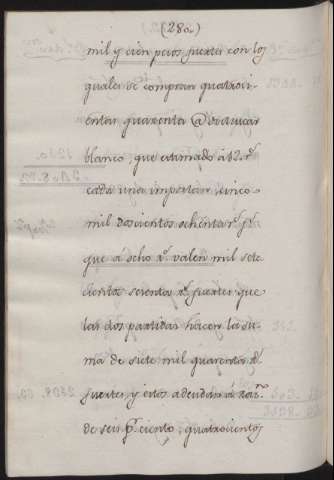 (280.)
mil y cien pesos fuertes con los
quales se compran quatroci-
entas quarenta @ de azucar
blanco que estimado á 12 r.ˢ
cada una importan cinco
mil doscientos ochenta r.ˢ p.ᵗᵃ
que á ocho r.ˢ valen mil sete
cientos sesenta p.ˢ fuertes que
las dos partidas hacen la su-
ma de siete mil quarenta p.ˢ
fuertes y estos adeudan á raz.ⁿ
de seis p.ʳ ciento, quatrocientos